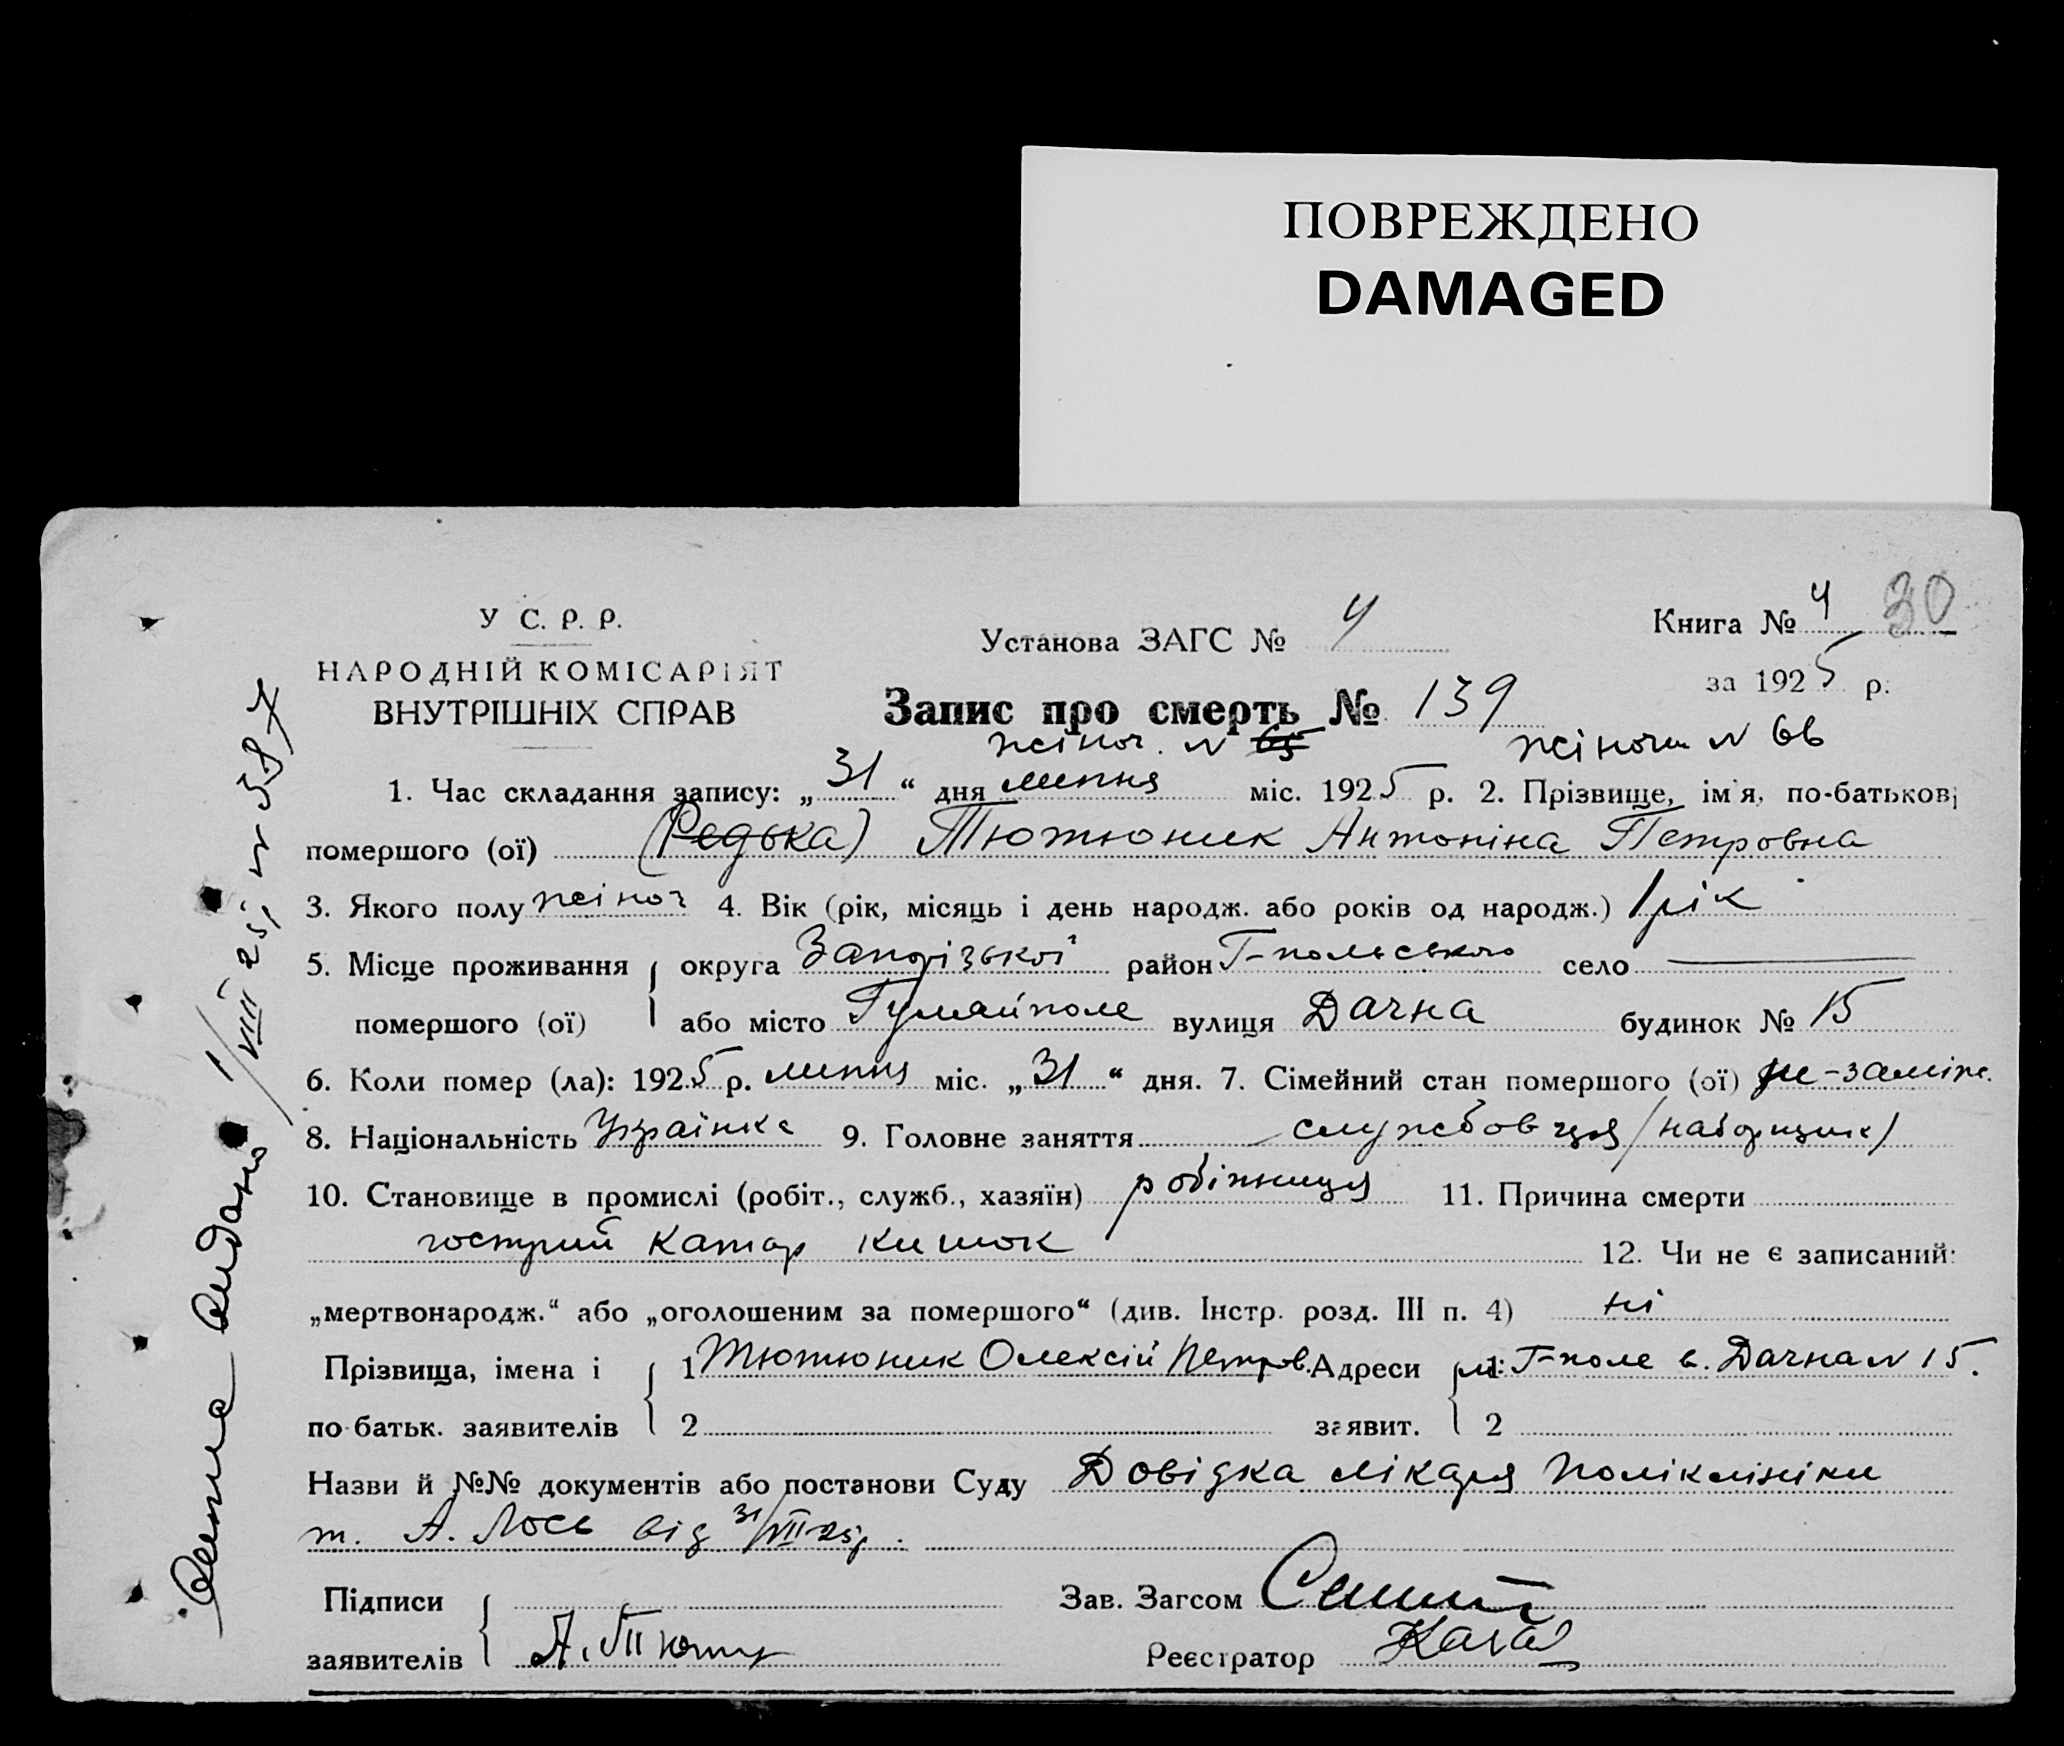 ПОВРЕЖДЕНО
DAMAGED
У С. Р. Р.
НАРОДНІЙ КОМІСАРІЯТ
ВНУТРІШНІХ СПРАВ
Установа ЗАГС № 4
Книга № 4 30
за 1925 р.
Запис про смерть № 139
жіноч. N 65 жіноч N 66
1. Час складання запису: „31“ дня липня міс. 1925 р. 2. Прізвище, ім'я, по-батькові
помершого (ої) (Редька) Тютюник Антоніна Петровна
3. Якого полу жіноч 4. Вік (рік, місяць і день народж. або років од народж.) 1 рік
5. Місце проживання округа Запорізької район Г-польського село —
помершого (ої) або місто Гуляйполе вулиця Дачна будинок № 15
6. Коли помер (ла): 1925 р. липня міс. „31“ дня. 7. Сімейний стан помершого (ої) не-заміж.
8. Національність Українка 9. Головне заняття службовця (наборщик)
10. Становище в промислі (робіт., служб., хазяїн) робітниця 11. Причина смерти
гострий катар кишок 12. Чи не є записаний:
„мертвонародж.“ або „оголошеним за помершого“ (див. Інстр. розд. III п. 4) ні
Прізвища, імена і 1 Тютюник Олексій Петров. Адреси 1 м: Г-поле в. Дачна N 15.
по-батьк. заявителів 2 заявит. 2
Назви й №№ документів або постанови Суду Довідка лікаря поліклініки
т. А. Лось від 31/VII-25р.
Підписи Зав. Загсом
заявителів А. Тютю Реєстратор
видано 1/VIII 25р N 587